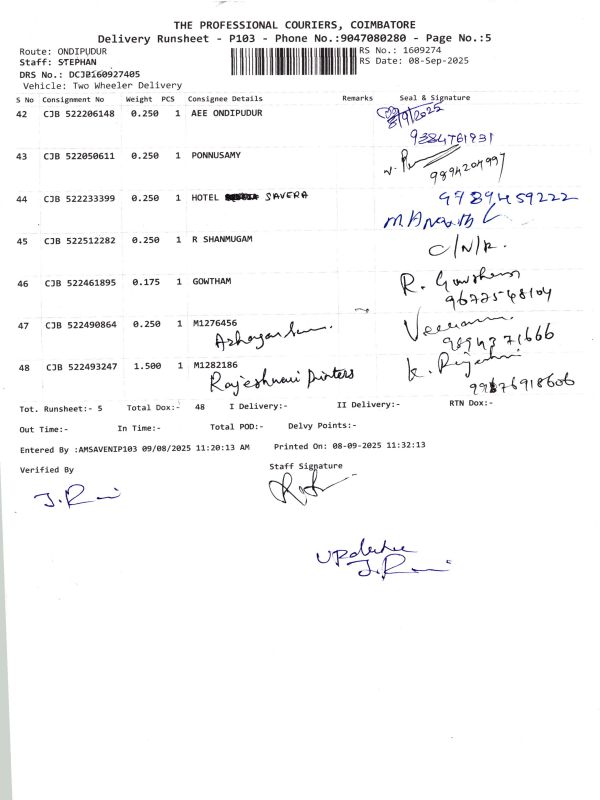 THE PROFESSIONAL COURIERS, COIMBATORE
Delivery Runsheet - P103 - Phone No.:9047080280 - Page No.:5
Route: ONDIPUDUR
RS No.: 1609274
Staff: STEPHAN
RS Date: 08-Sep-2025
DRS No.: DCJB160927405
Vehicle: Two Wheeler Delivery
S No Consignment No Weight PCS Consignee Details Remarks Seal & Signature
42 CJB 522206148 0.250 1 AEE ONDIPUDUR
8/9/2025
9384761931
43 CJB 522050611 0.250 1 PONNUSAMY
9894204997
44 CJB 522233399 0.250 1 HOTEL SAVERA
9989459222
45 CJB 522512282 0.250 1 R SHANMUGAM
C/N/R.
46 CJB 522461895 0.175 1 GOWTHAM
R. Gowtham
9677548104
47 CJB 522490864 0.250 1 M1276456
9894371666
48 CJB 522493247 1.500 1 M1282186
Rajeshwari printers
Tot. Runsheet:- 5 Total Dox:- 48 I Delivery:- II Delivery:- RTN Dox:-
Out Time:- In Time:- Total POD:- Delvy Points:-
Entered By :AMSAVENIP103 09/08/2025 11:20:13 AM Printed On: 08-09-2025 11:32:13
Verified By Staff Signature